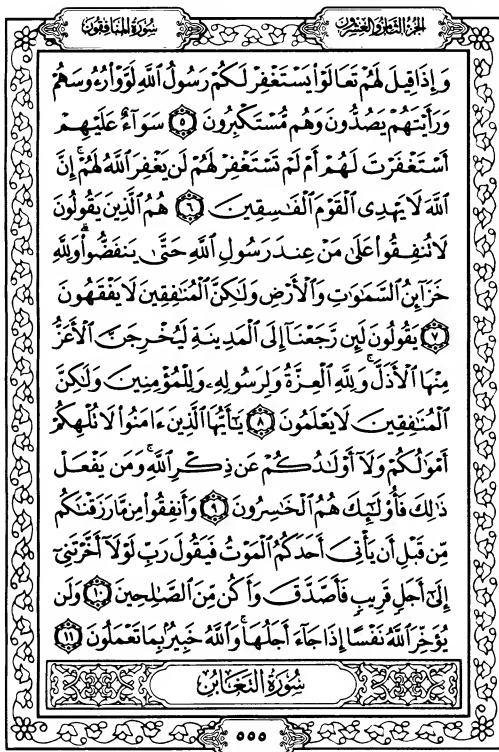 الجزء الثامن والعشرون
سورة المنافقون
وَإِذَا قِيلَ لَهُمْ تَعَالَوْا۟ يَسْتَغْفِرْ لَكُمْ رَسُولُ ٱللَّهِ لَوَّوْا۟ رُءُوسَهُمْ
وَرَأَيْتَهُمْ يَصُدُّونَ وَهُم مُّسْتَكْبِرُونَ ٥ سَوَآءٌ عَلَيْهِمْ
أَسْتَغْفَرْتَ لَهُمْ أَمْ لَمْ تَسْتَغْفِرْ لَهُمْ لَن يَغْفِرَ ٱللَّهُ لَهُمْ ۚ إِنَّ
ٱللَّهَ لَا يَهْدِى ٱلْقَوْمَ ٱلْفَـٰسِقِينَ ٦ هُمُ ٱلَّذِينَ يَقُولُونَ
لَا تُنفِقُوا۟ عَلَىٰ مَنْ عِندَ رَسُولِ ٱللَّهِ حَتَّىٰ يَنفَضُّوا۟ ۗ وَلِلَّهِ
خَزَآئِنُ ٱلسَّمَـٰوَٰتِ وَٱلْأَرْضِ وَلَـٰكِنَّ ٱلْمُنَـٰفِقِينَ لَا يَفْقَهُونَ
٧ يَقُولُونَ لَئِن رَّجَعْنَآ إِلَى ٱلْمَدِينَةِ لَيُخْرِجَنَّ ٱلْأَعَزُّ
مِنْهَا ٱلْأَذَلَّ ۚ وَلِلَّهِ ٱلْعِزَّةُ وَلِرَسُولِهِۦ وَلِلْمُؤْمِنِينَ وَلَـٰكِنَّ
ٱلْمُنَـٰفِقِينَ لَا يَعْلَمُونَ ٨ يَـٰٓأَيُّهَا ٱلَّذِينَ ءَامَنُوا۟ لَا تُلْهِكُمْ
أَمْوَٰلُكُمْ وَلَآ أَوْلَـٰدُكُمْ عَن ذِكْرِ ٱللَّهِ ۚ وَمَن يَفْعَلْ
ذَٰلِكَ فَأُو۟لَـٰٓئِكَ هُمُ ٱلْخَـٰسِرُونَ ٩ وَأَنفِقُوا۟ مِن مَّا رَزَقْنَـٰكُم
مِّن قَبْلِ أَن يَأْتِىَ أَحَدَكُمُ ٱلْمَوْتُ فَيَقُولَ رَبِّ لَوْلَآ أَخَّرْتَنِىٓ
إِلَىٰٓ أَجَلٍ قَرِيبٍ فَأَصَّدَّقَ وَأَكُن مِّنَ ٱلصَّـٰلِحِينَ ١٠ وَلَن
يُؤَخِّرَ ٱللَّهُ نَفْسًا إِذَا جَآءَ أَجَلُهَا ۚ وَٱللَّهُ خَبِيرٌۢ بِمَا تَعْمَلُونَ ١١
سورة التغابن
٥٥٥